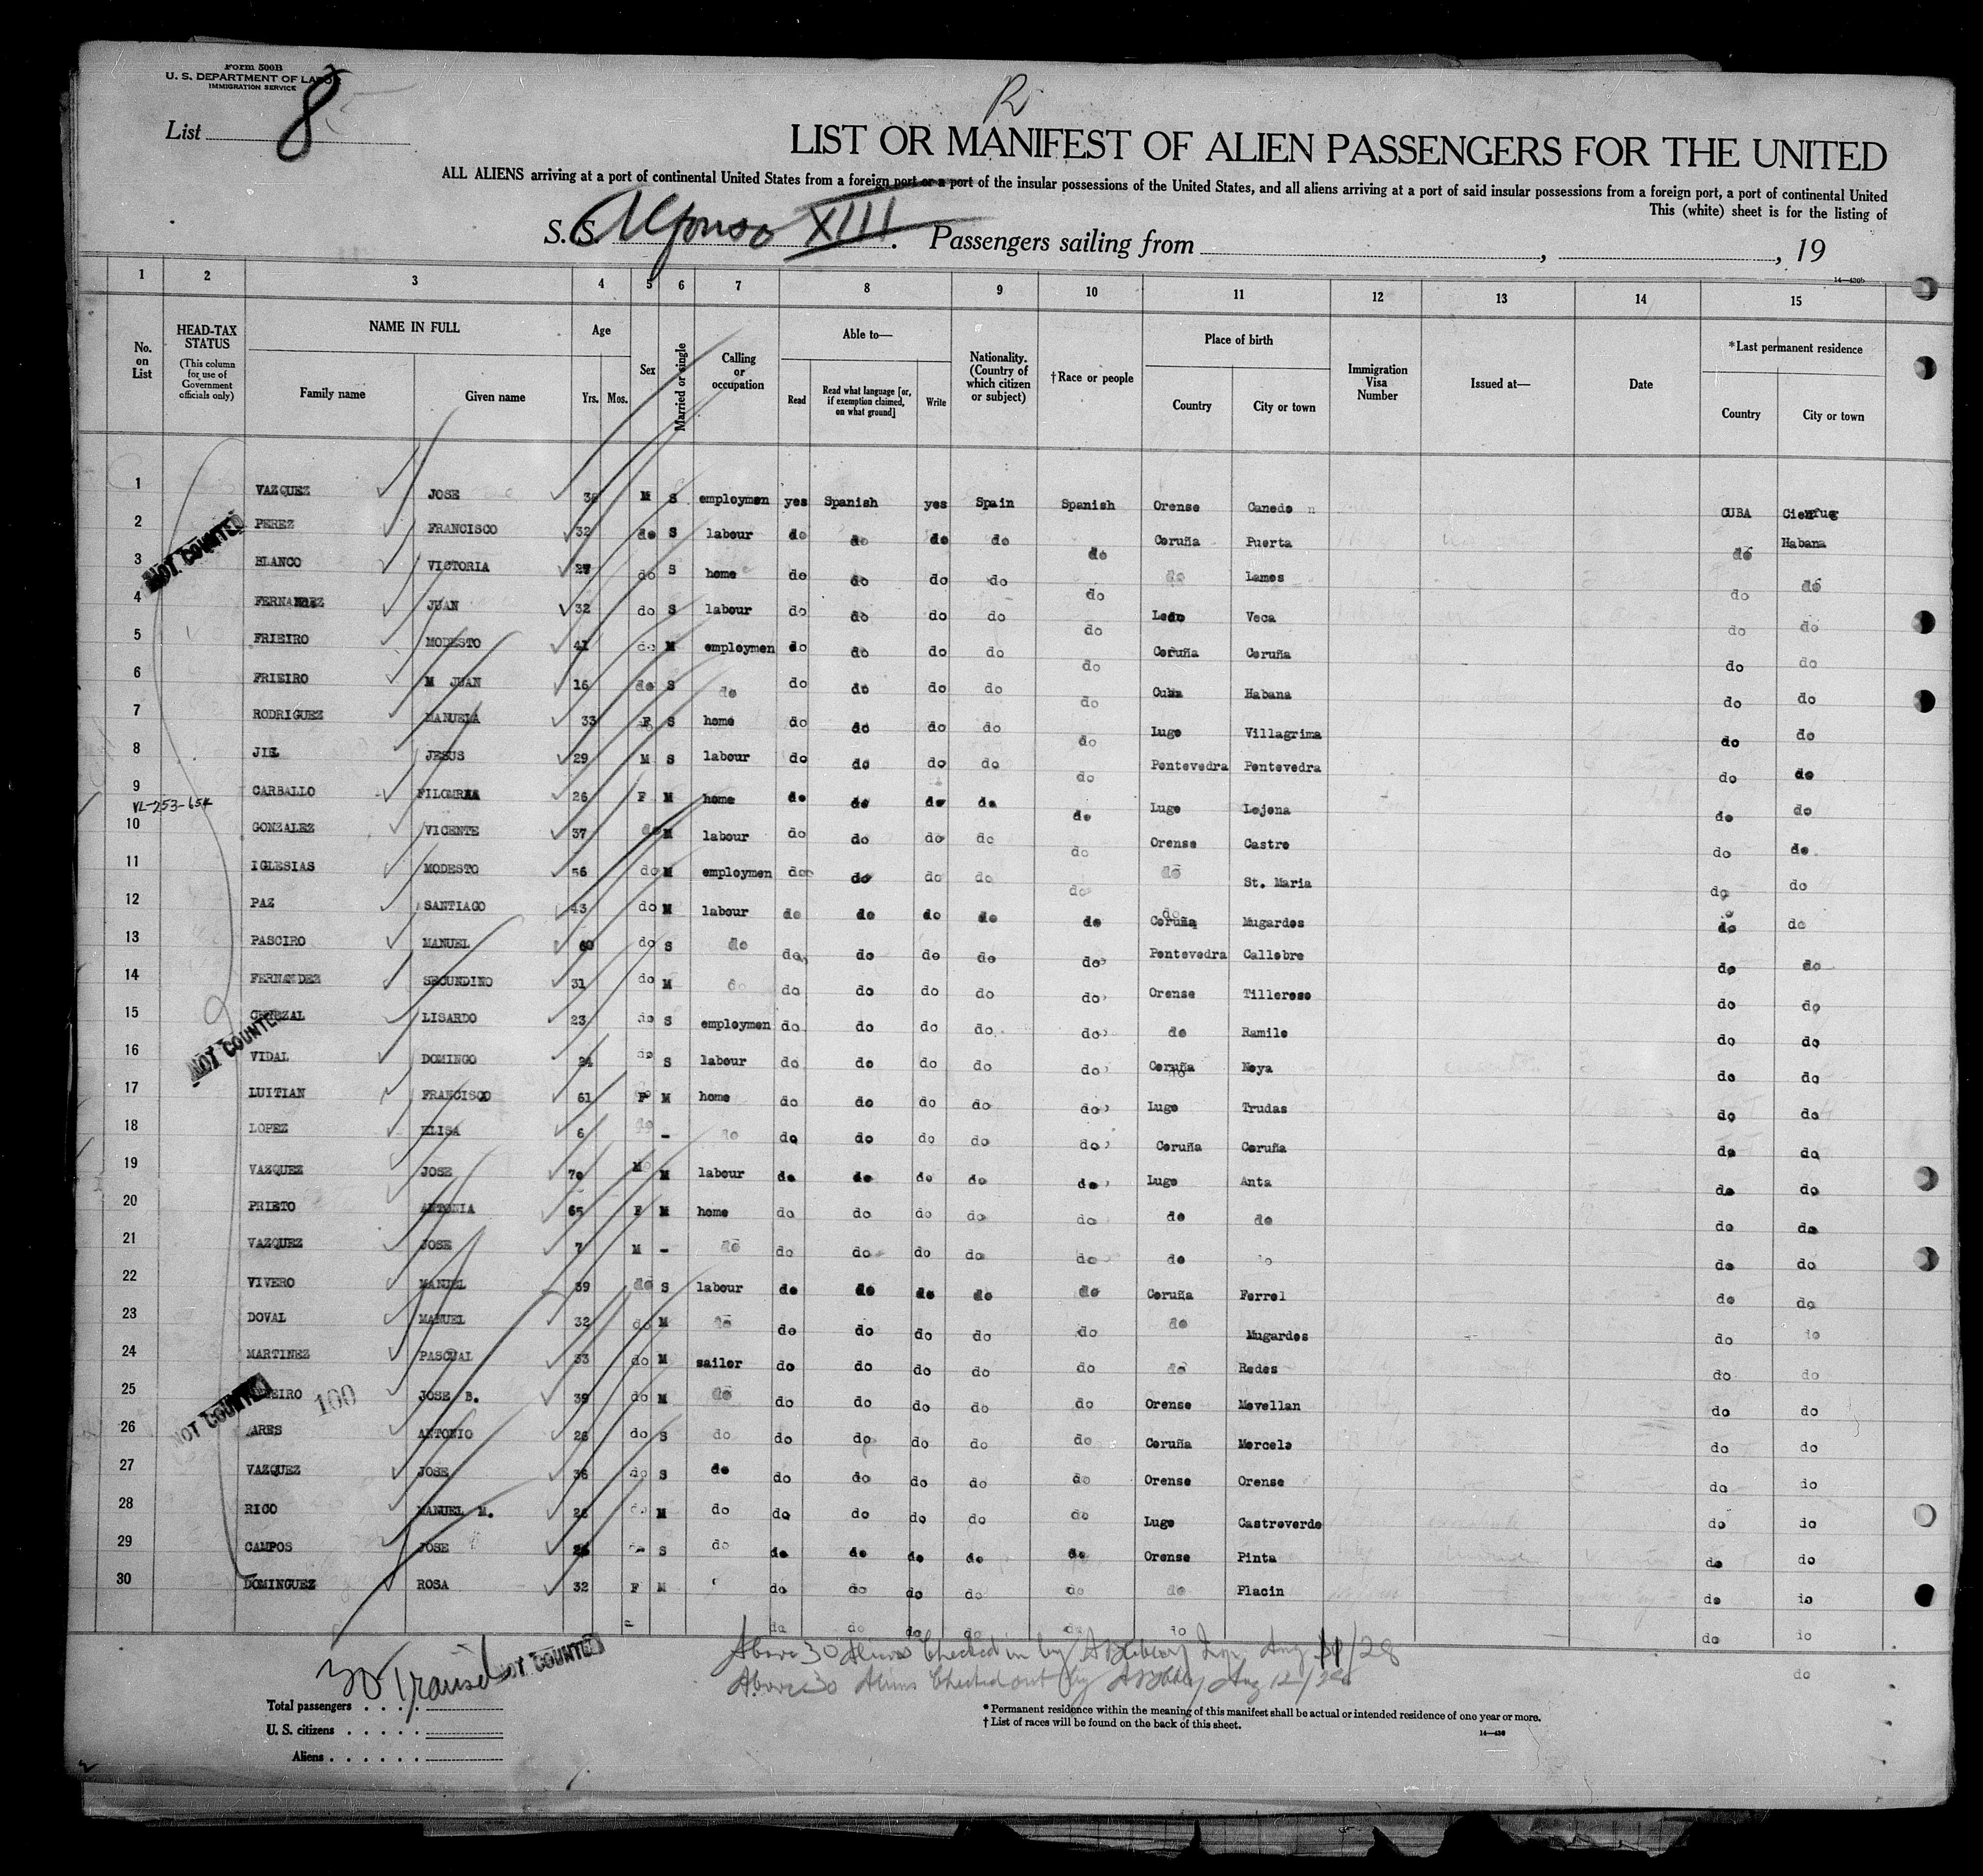 Form 500B
U. S. DEPARTMENT OF LABOR
IMMIGRATION SERVICE
List 8
R
LIST OR MANIFEST OF ALIEN PASSENGERS FOR THE UNITED
ALL ALIENS arriving at a port of continental United States from a foreign port or a port of the insular possessions of the United States, and all aliens arriving at a port of said insular possessions from a foreign port, a port of continental United
This (white) sheet is for the listing of
S. S. Alfonso XIII. Passengers sailing from , , 19
14—430b
1 2 3 4 5 6 7 8 9 10 11 12 13 14 15
No. on List
HEAD-TAX STATUS (This column for use of Government officials only)
NAME IN FULL Family name Given name
Age Yrs. Mos.
Sex
Married or single
Calling or occupation
Able to— Read Read what language [or, if exemption claimed, on what ground] Write
Nationality. (Country of which citizen or subject)
†Race or people
Place of birth Country City or town
Immigration Visa Number
Issued at—
Date
*Last permanent residence Country City or town
1 VAZQUEZ JOSE 36 M S employmen yes Spanish yes Spain Spanish Orense Canedo CUBA Cienfueg
2 PEREZ FRANCISCO 32 do S labour do do do do do Coruña Puerta do Habana
3 BLANCO VICTORIA 27 do S home do do do do do do Lames do do
4 FERNANDEZ JUAN 32 do S labour do do do do do Leon Veca do do
5 FRIEIRO MODESTO 41 do M employmen do do do do do Coruña Coruña do do
6 FRIEIRO M JUAN 16 do S do do do do do do Cuba Habana do do
7 RODRIGUEZ MANUELA 33 F S home do do do do do Lugo Villagrima do do
8 JIL JESUS 29 M S labour do do do do do Pontevedra Pontevedra do do
9 CARBALLO FILOMENA 26 F M home do do do do do Lugo Lojena do do
VL-253-654
10 GONZALEZ VICENTE 37 do M labour do do do do do Orense Castro do do
11 IGLESIAS MODESTO 56 do M employmen do do do do do do St. Maria do do
12 PAZ SANTIAGO 43 do M labour do do do do do Coruña Mugardos do do
13 PASCIRO MANUEL 60 do S do do do do do do Pontevedra Callobre do do
14 FERNANDEZ SECUNDINO 31 do M do do do do do do Orense Tilleroso do do
15 LISARDO 23 do S employmen do do do do do do Ramilo do do
16 VIDAL DOMINGO 24 do S labour do do do do do Coruña Noya do do
17 LUITIAN FRANCISCO 61 F M home do do do do do Lugo Trudas do do
18 LOPEZ ELISA 6 do - do do do do do do Coruña Coruña do do
19 VAZQUEZ JOSE 70 M M labour do do do do do Lugo Anta do do
20 PRIETO ANTONIA 65 F M home do do do do do do do do do
21 VAZQUEZ JOSE 7 M - do do do do do do do do do do
22 VIVERO MANUEL 39 do S labour do do do do do Coruña Ferrol do do
23 DOVAL MANUEL 32 do M do do do do do do do Mugardos do do
24 MARTINEZ PASCUAL 33 do M sailor do do do do do do Redes do do
25 100 JOSE B. 39 do M do do do do do do Orense Movellan do do
26 ARES ANTONIO 26 do S do do do do do do Coruña Morcelo do do
27 VAZQUEZ JOSE 36 do S do do do do do do Orense Orense do do
28 RICO MANUEL M. 26 do M do do do do do do Lugo Castroverde do do
29 CAMPOS JOSE S do do do do do do Orense Pinta do do
30 DOMINGUEZ ROSA 32 F M do do do do do do Placin do do
do do do do do do do do
do
NOT COUNTED
NOT COUNTED
NOT COUNTED
NOT COUNTED
30 Transit
Above 30 Aliens Checked in by Insp. Aug 11/28
Above 30 Aliens Checked out by Aug 12/28
Total passengers
U. S. citizens
Aliens
* Permanent residence within the meaning of this manifest shall be actual or intended residence of one year or more.
† List of races will be found on the back of this sheet.
14—430